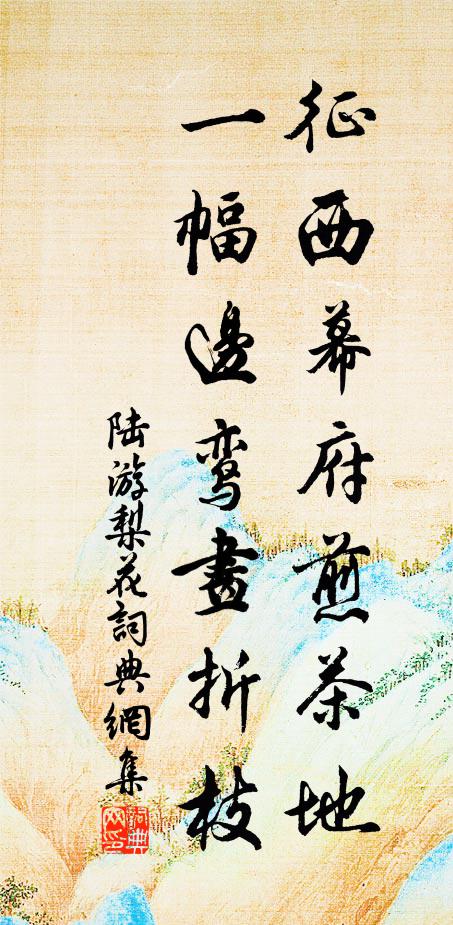 征西幕府煎茶地
一幅邊鸾畫折枝
陆游梨花詞典網集
詞典